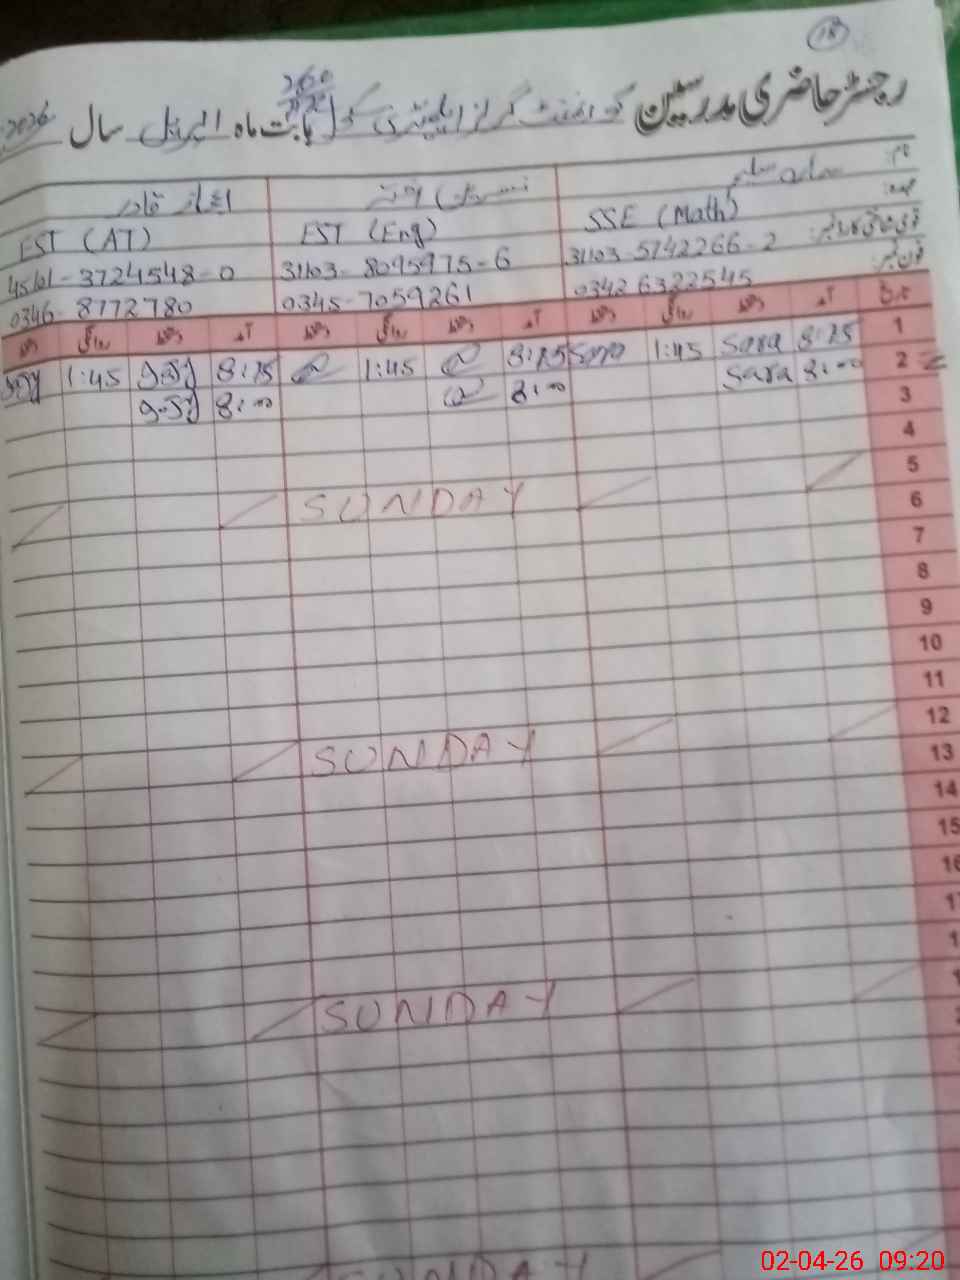 18
رجسٹر حاضری مدرسین گورنمنٹ گرلز ایلیمنٹری سکول 260 بابت ماہ اپریل سال 2026
نام:
عہدہ: SSE (Math) EST (Eng) EST (AT)
قومی شناختی کارڈ نمبر: 31103-5742266-2 31103-8095975-6 45101-3724548-0
فون نمبر: 0342 6322545 0345-7059261 0346-8772780
تاریخ آمد دستخط روانگی دستخط آمد دستخط روانگی دستخط آمد دستخط روانگی دستخط
1 8:25 Sara 1:45 Sara 8:25 1:45 8:25 1:45
2 8:00 Sara 8:00 8:00
3
4
5 SUNDAY
6
7
8
9
10
11
12 SUNDAY
13
14
15
16
SUNDAY
SUNDAY
02-04-26 09:20